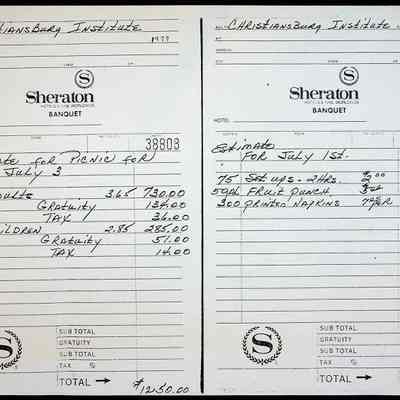 iansburg Institute
1977
Sheraton
HOTELS & INNS, WORLDWIDE
BANQUET
38808
te for Picnic for
July 3
dults 3.65 730.00
Gratuity 134.00
Tax 36.00
ildren 2.85 285.00
Gratuity 51.00
Tax 14.00
SUB TOTAL
GRATUITY
SUB TOTAL
TAX %
TOTAL → $1250.00
Christiansburg Institute
Sheraton
HOTELS & INNS, WORLDWIDE
BANQUET
HOTEL:
Estimate
For July 1st.
75 Set ups - 2 HRS.
Fruit Punch
300 printed Napkins
SUB TOTAL
GRATUITY
SUB TOTAL
TAX %
TOTAL →